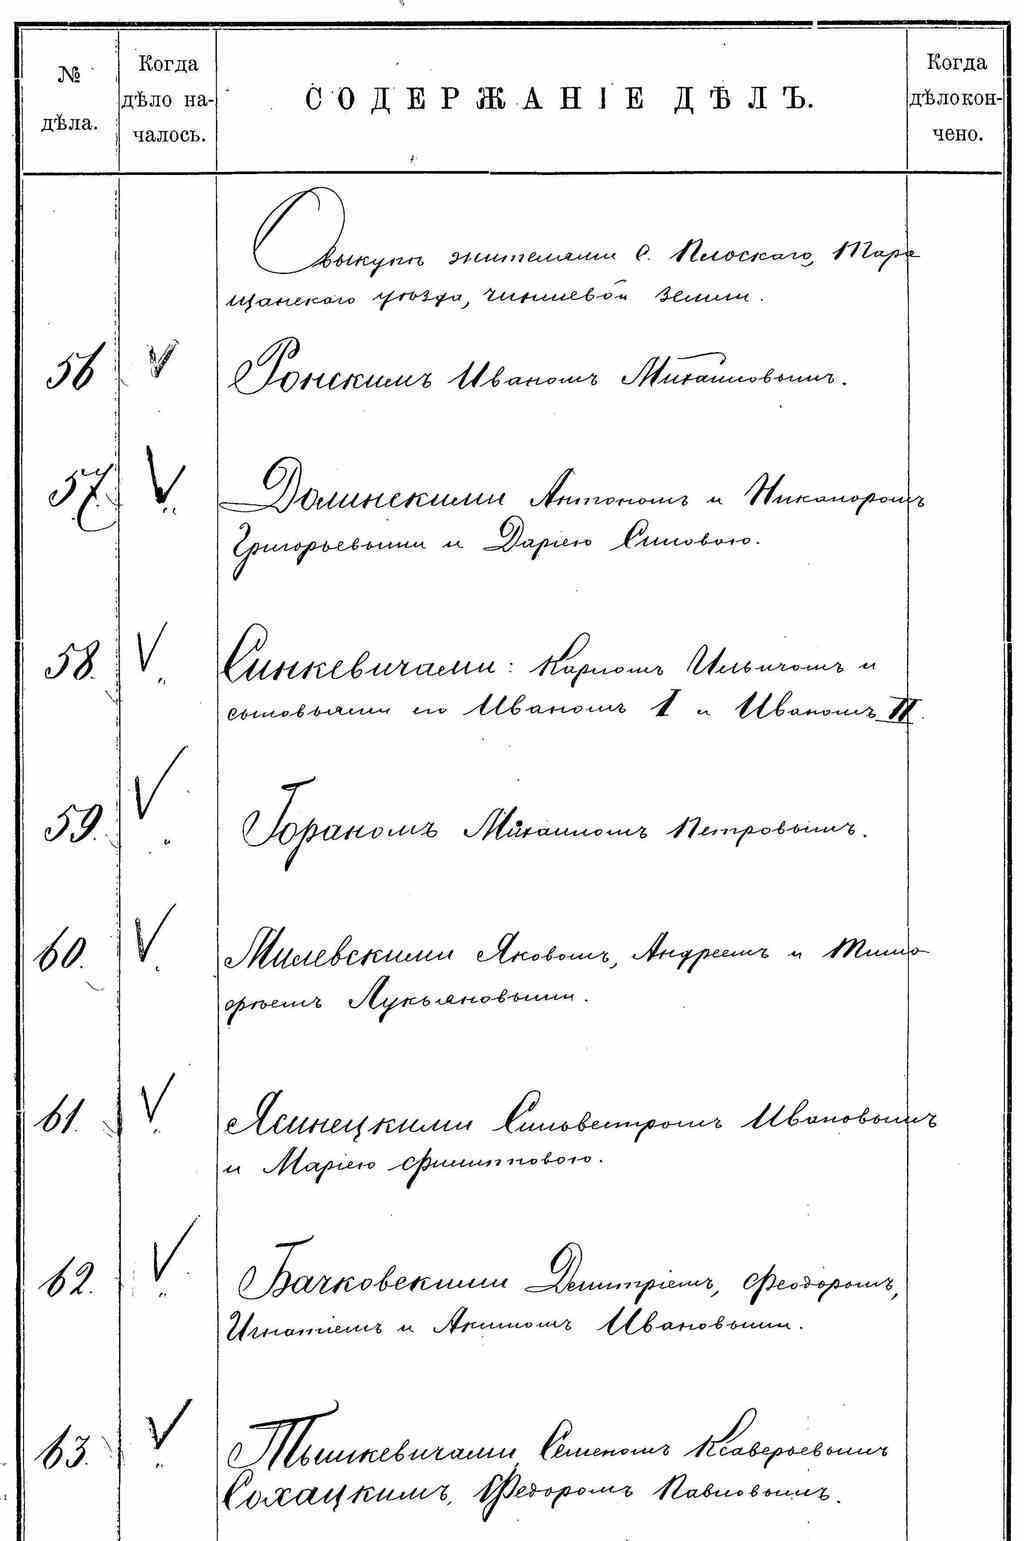 № дѣла.
Когда дѣло на-чалось.
СОДЕРЖАНІЕ ДѢЛЪ.
Когда дѣло кон-чено.
О выкупѣ жителями с. Плоскаго, Тара
щанскаго уѣзда, чиншевой земли.
56 Ронскимъ Иваномъ Михайловымъ.
57. Долинскими Антономъ и Никаноромъ
Григорьевыми и Даріею Силовою.
58. Синкевичами: Карломъ Ильичомъ и
сыновьями его Иваномъ I и Иваномъ II.
59. Гораномъ Михаиломъ Петровымъ.
60. Милевскими Яковомъ, Андреемъ и Тимо
фѣемъ Лукьяновыми.
61. Ясинецкими Сильвестромъ Ивановымъ
и Маріею Филипповою.
62. Бачковскими Демитріемъ, Феодоромъ,
Игнатіемъ и Акимомъ Ивановыми.
63. Тышкевичами Семеномъ Ксаверьевымъ
Сохацкимъ, Федоромъ Павловымъ.